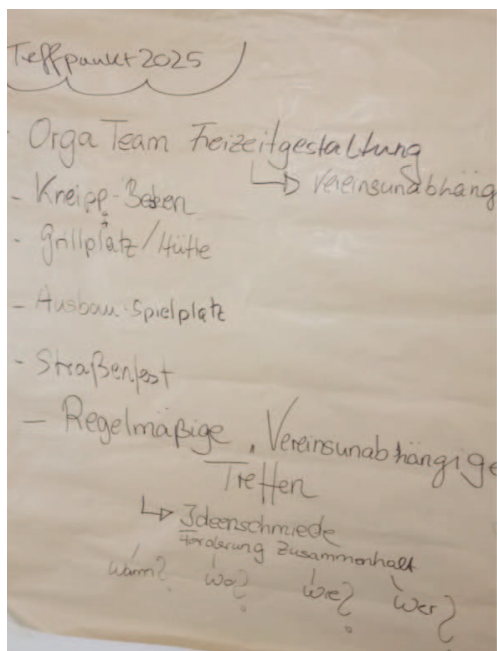 Treffpunkt 2025
- Orga Team Freizeitgestaltung
↳ Vereinsunabhäng
- Kreipp-
- Grillplatz/Hütte
- Ausbau-Spielplatz
- Straßenfest
- Regelmäßige, Vereinsunabhängige
Treffen
↳ Ideenschmiede
Förderung Zusammenhalt
Wann? Wo? Wie? Wer?